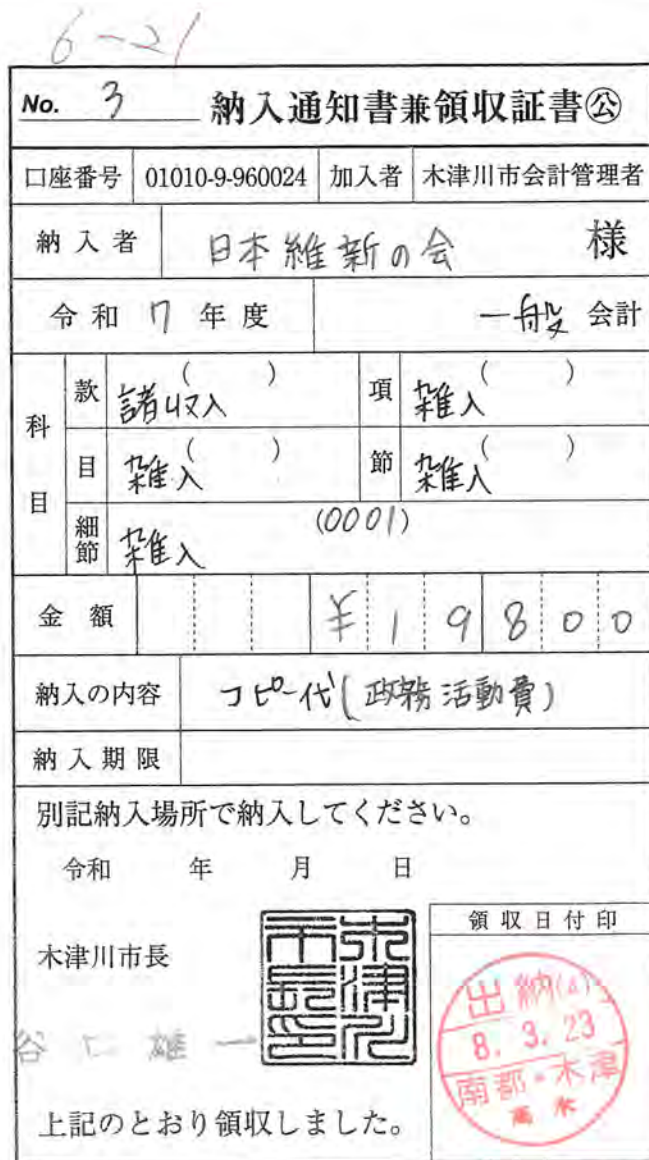 6-21
No. 3 納入通知書兼領収証書㊞公
口座番号 01010-9-960024 加入者 木津川市会計管理者
納入者 日本維新の会 様
令和 7 年度 一般 会計
科目
款 ( ) 諸収入 項 ( ) 雑入
目 ( ) 雑入 節 ( ) 雑入
細節 雑入 (0001)
金額 ¥19800
納入の内容 コピー代(政務活動費)
納入期限
別記納入場所で納入してください。
令和 年 月 日
領収日付印
木津川市長
木津川市長印
谷口雄一
出納(4)
8. 3. 23
南都・木津
上記のとおり領収しました。